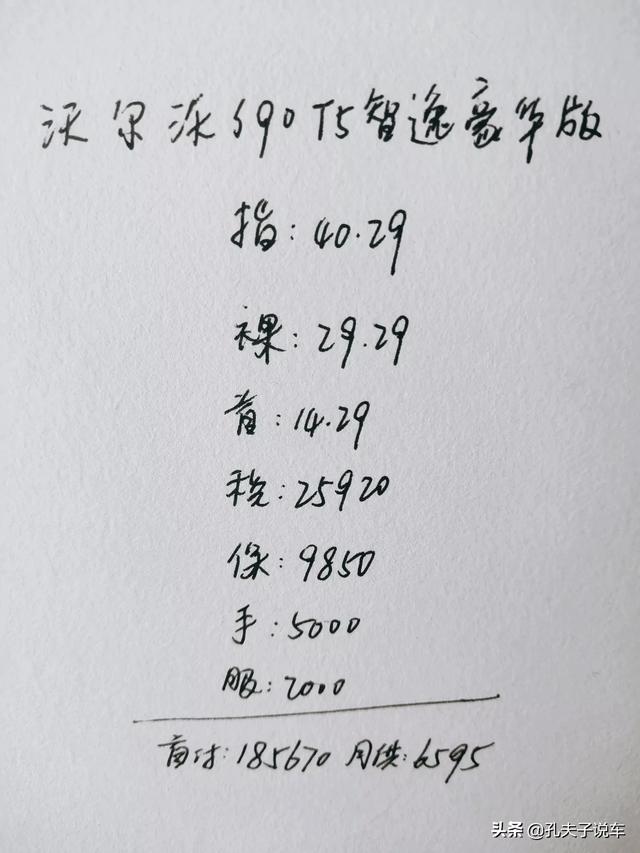 沃尔沃S90 T5智逸豪华版
指:40.29
裸:29.29
首:14.29
税:25920
保:9850
手:5000
服:2000
首付:185670 月供:6595
头条 @孔夫子说车